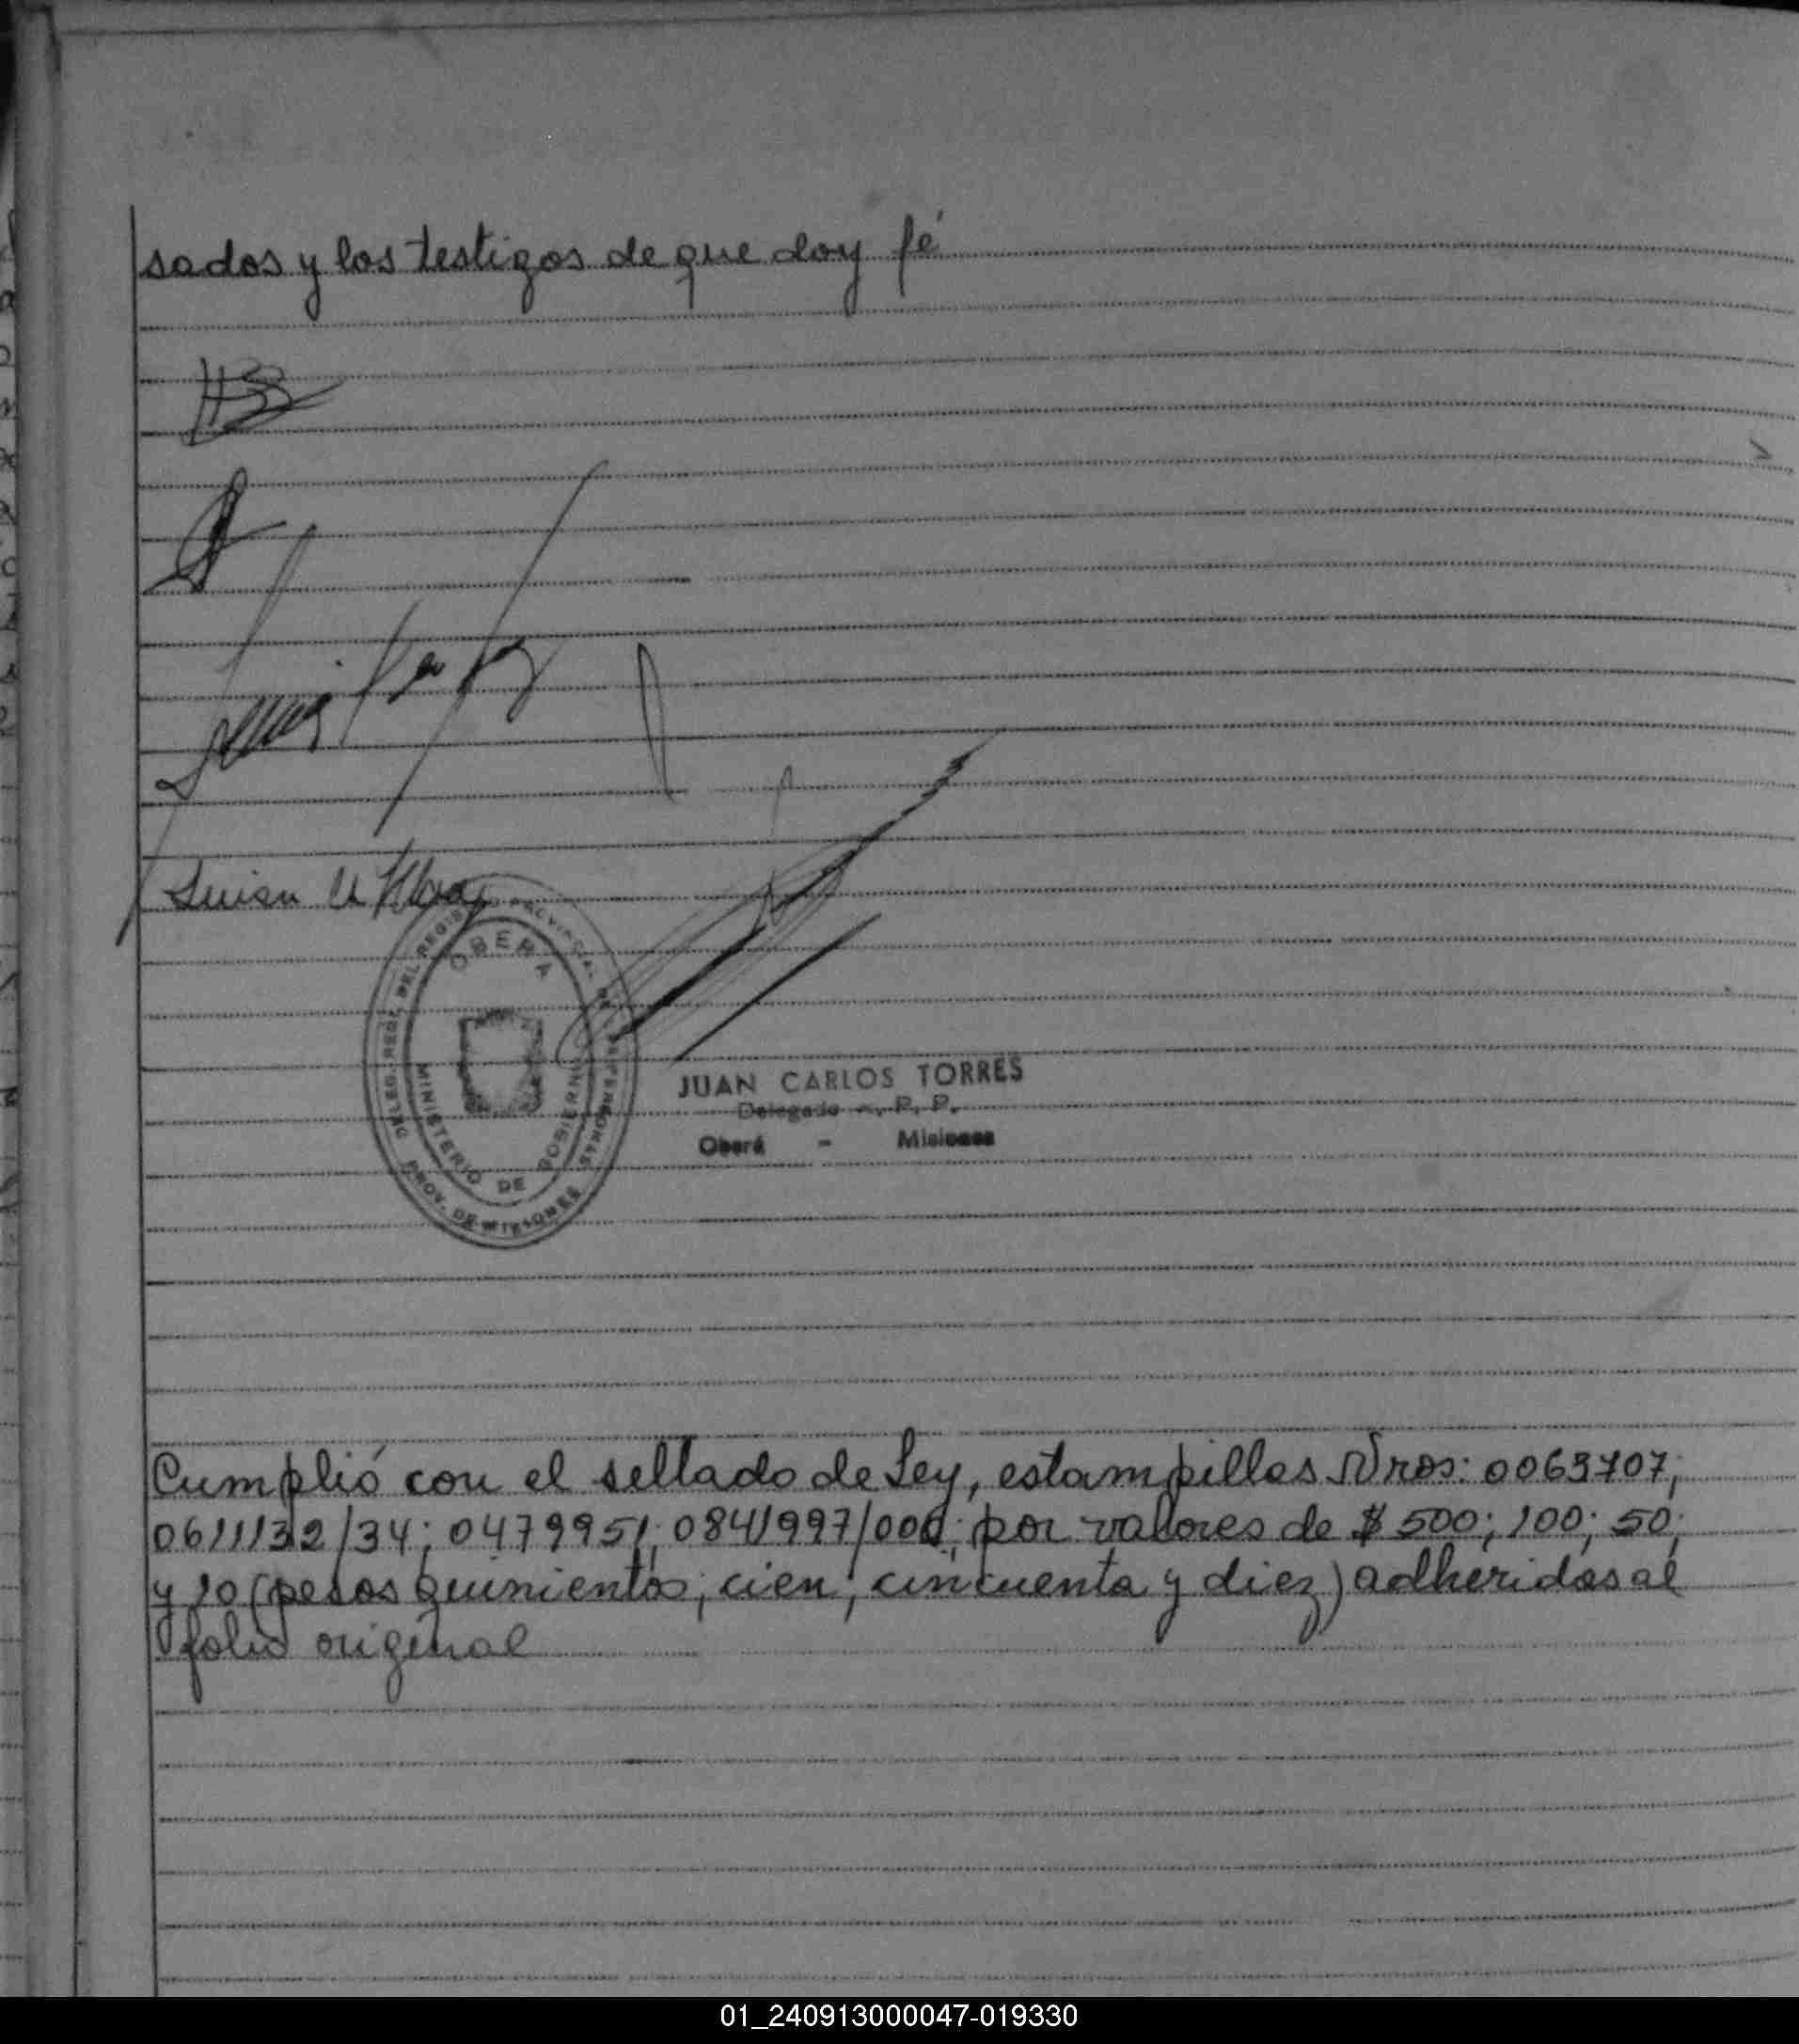 sados y los testigos de que doy fé
DELEG. REG. DEL REGISTRO PROVINCIAL DE PERSONAS
OBERA
MINISTERIO DE GOBIERNO
PROV. DE MISIONES
JUAN CARLOS TORRES
Delegado R. P. P.
Oberá - Misiones
Cumplió con el sellado de Ley, estampillas Nros: 0063707;
0611132/34; 0479951; 0841997/000; por valores de $ 500; 100; 50;
y 10 (pesos quinientos; cien; cincuenta y diez) adheridos al
folio original
01_240913000047-019330